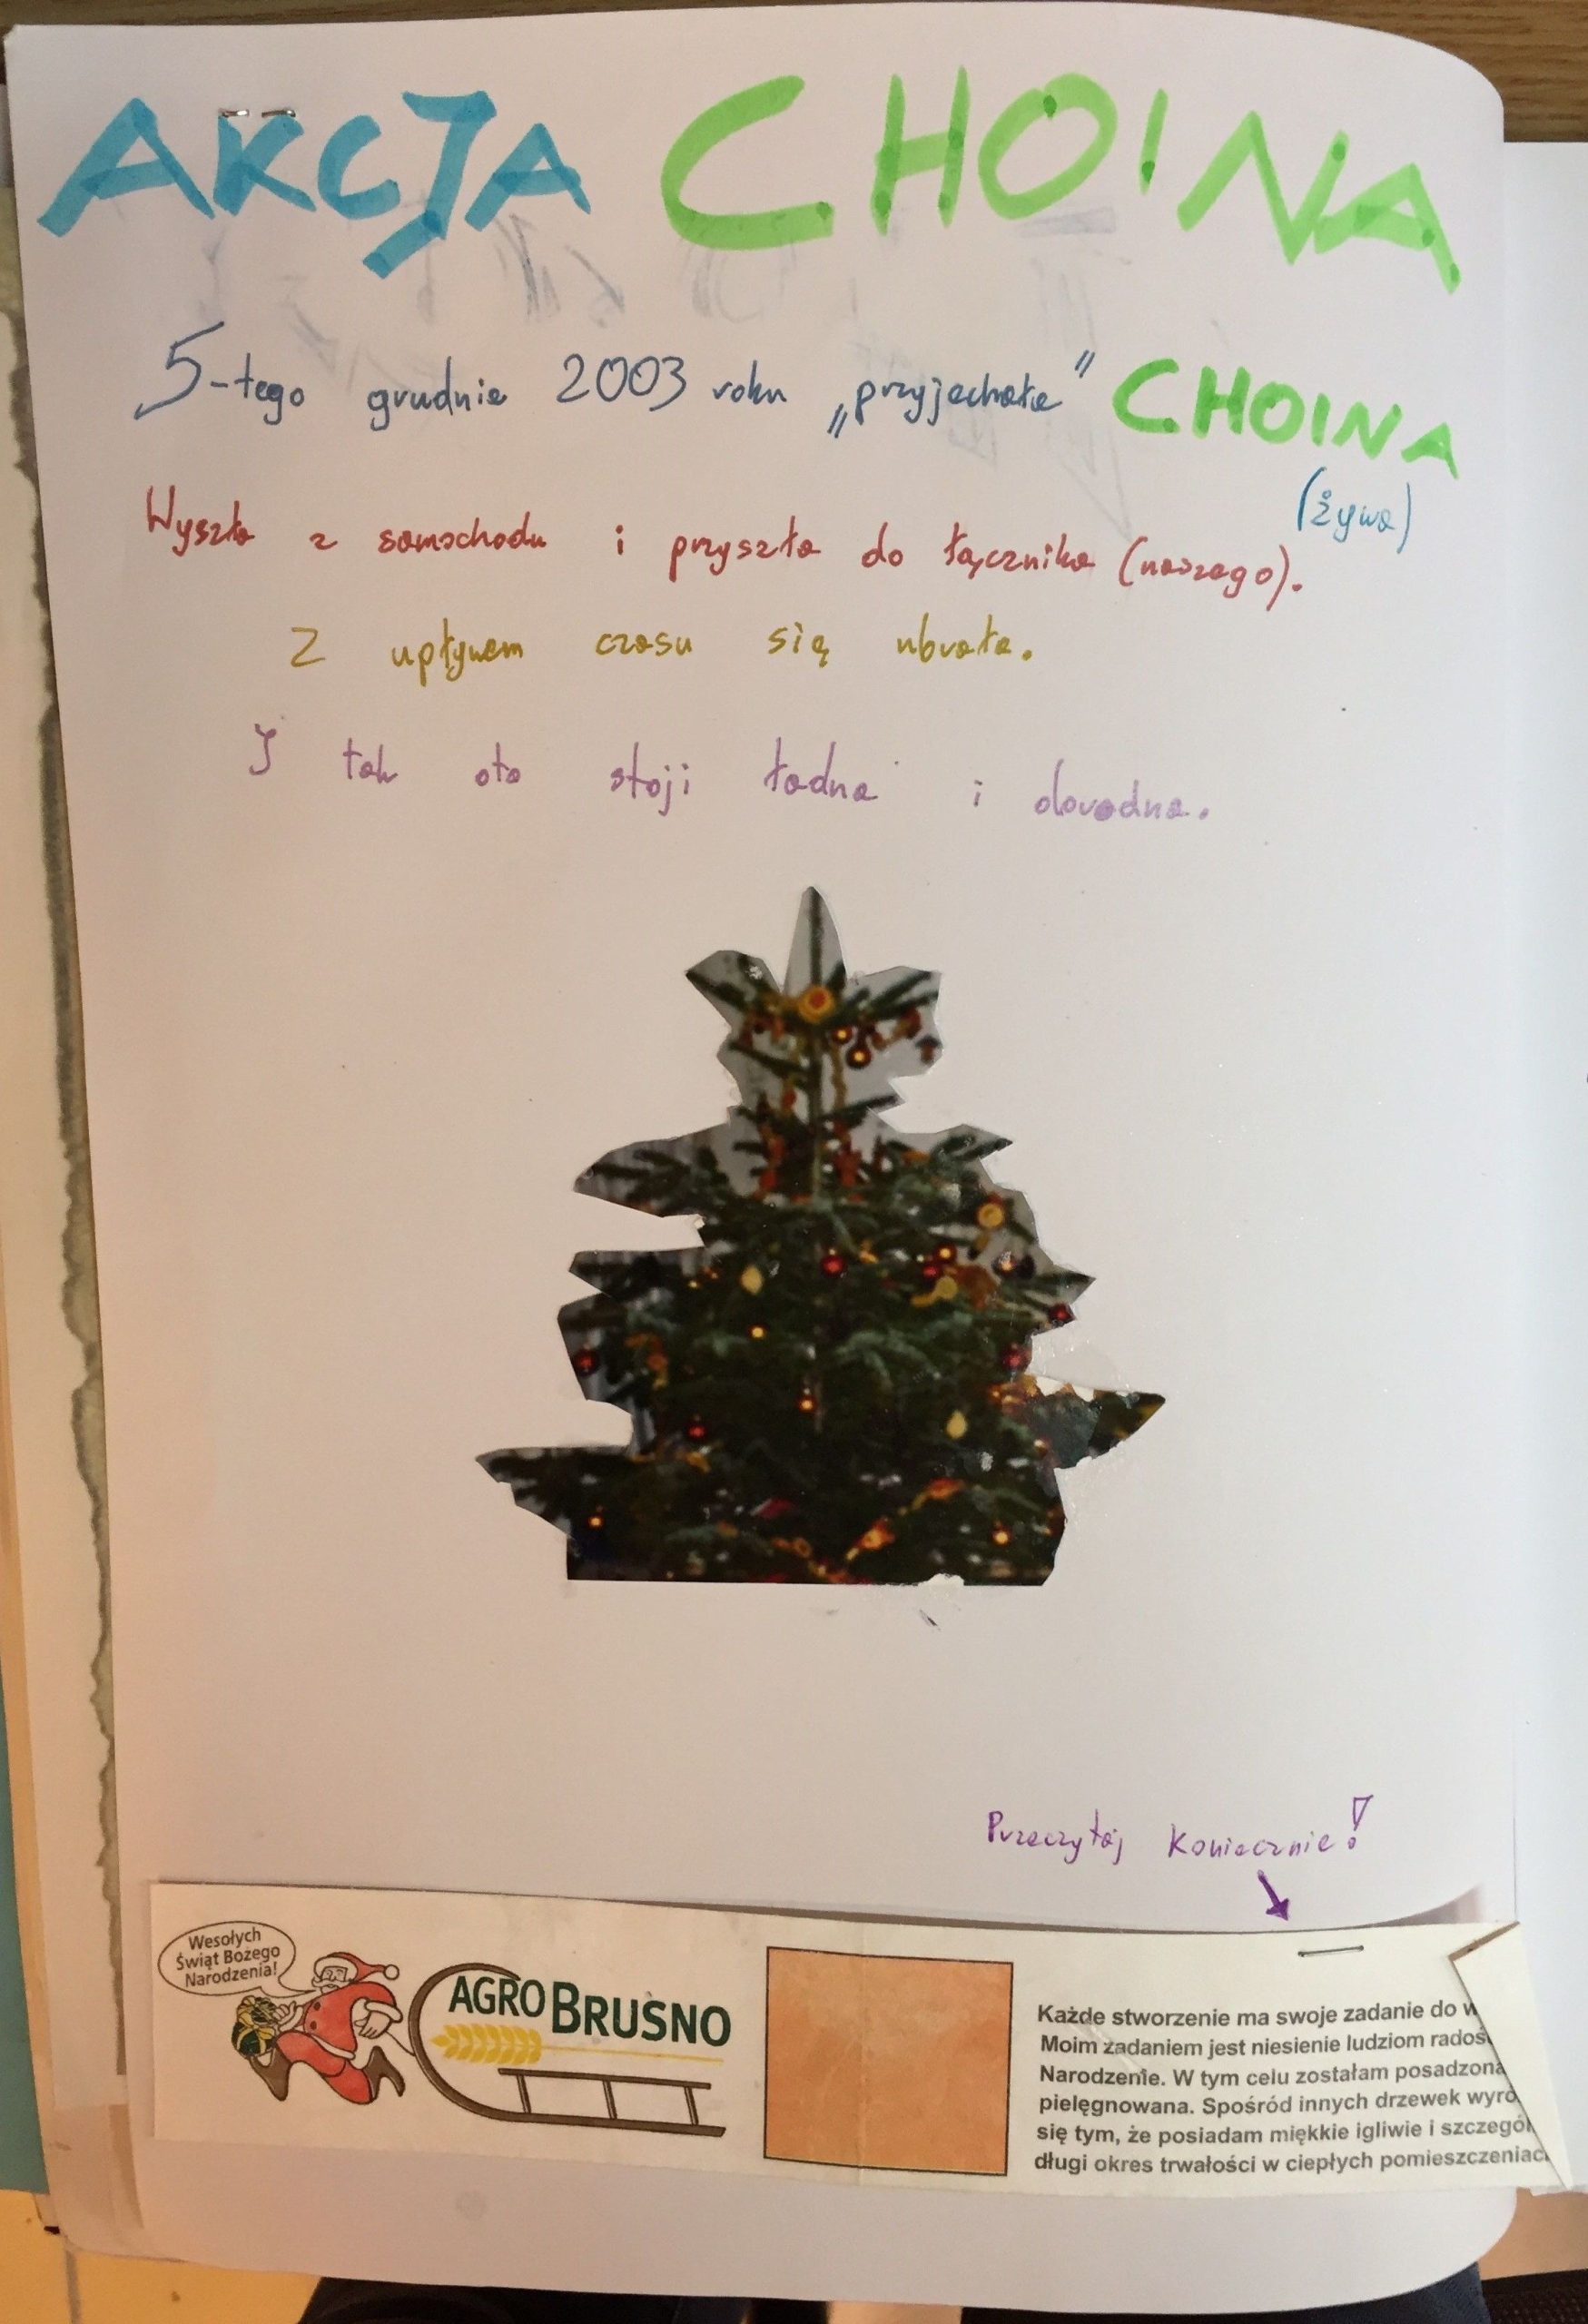 AKCJA CHOINA
5-tego grudnia 2003 roku „przyjechała” CHOINA
(żywa)
Wyszła z samochodu i przyszła do łącznika (naszego).
Z upływem czasu się ubrała.
I tak oto stoji ładna i dorodna.
Przeczytaj koniecznie!
Wesołych
Świąt Bożego
Narodzenia!
AGROBRUSNO
Każde stworzenie ma swoje zadanie do
Moim zadaniem jest niesienie ludziom
Narodzenie. W tym celu zostałam posadzona
pielęgnowana. Spośród innych drzewek
się tym, że posiadam miękkie igliwie i
długi okres trwałości w ciepłych